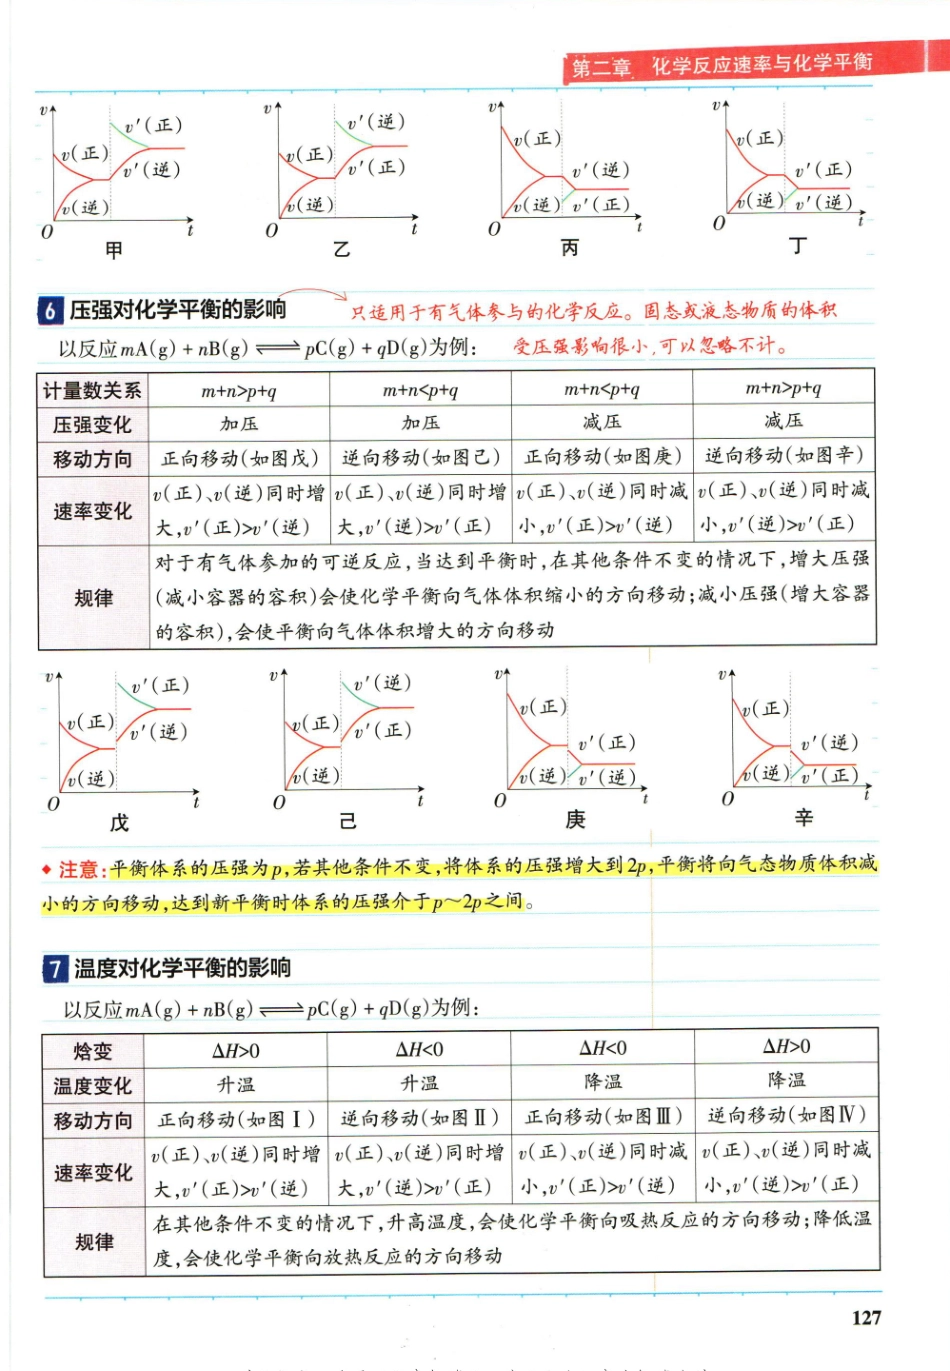 第二章 化学反应速率与化学平衡
v v v v
v′(正) v′(逆) v(正) v(正)
v(正) v′(逆) v(正) v′(正) v′(逆) v′(正)
v(逆) v(逆) v(逆) v′(正) v(逆) v′(逆)
O t O t O t O t
甲 乙 丙 丁
6 压强对化学平衡的影响 只适用于有气体参与的化学反应。固态或液态物质的体积
以反应mA(g)+nB(g)⇌pC(g)+qD(g)为例: 受压强影响很小,可以忽略不计。
计量数关系 m+n>p+q m+n<p+q m+n<p+q m+n>p+q
压强变化 加压 加压 减压 减压
移动方向 正向移动(如图戊) 逆向移动(如图己) 正向移动(如图庚) 逆向移动(如图辛)
速率变化 v(正)、v(逆)同时增 v(正)、v(逆)同时增 v(正)、v(逆)同时减 v(正)、v(逆)同时减
大,v′(正)>v′(逆) 大,v′(逆)>v′(正) 小,v′(正)>v′(逆) 小,v′(逆)>v′(正)
对于有气体参加的可逆反应,当达到平衡时,在其他条件不变的情况下,增大压强
规律 (减小容器的容积)会使化学平衡向气体体积缩小的方向移动;减小压强(增大容器
的容积),会使平衡向气体体积增大的方向移动
v v v v
v′(正) v′(逆) v(正) v(正)
v(正) v′(逆) v(正) v′(正) v′(正) v′(逆)
v(逆) v(逆) v(逆) v′(逆) v(逆) v′(正)
O t O t O t O t
戊 己 庚 辛
◆注意:平衡体系的压强为p,若其他条件不变,将体系的压强增大到2p,平衡将向气态物质体积减
小的方向移动,达到新平衡时体系的压强介于p～2p之间。
7 温度对化学平衡的影响
以反应mA(g)+nB(g)⇌pC(g)+qD(g)为例:
焓变 ΔH>0 ΔH<0 ΔH<0 ΔH>0
温度变化 升温 升温 降温 降温
移动方向 正向移动(如图Ⅰ) 逆向移动(如图Ⅱ) 正向移动(如图Ⅲ) 逆向移动(如图Ⅳ)
速率变化 v(正)、v(逆)同时增 v(正)、v(逆)同时增 v(正)、v(逆)同时减 v(正)、v(逆)同时减
大,v′(正)>v′(逆) 大,v′(逆)>v′(正) 小,v′(正)>v′(逆) 小,v′(逆)>v′(正)
规律 在其他条件不变的情况下,升高温度,会使化学平衡向吸热反应的方向移动;降低温
度,会使化学平衡向放热反应的方向移动
127